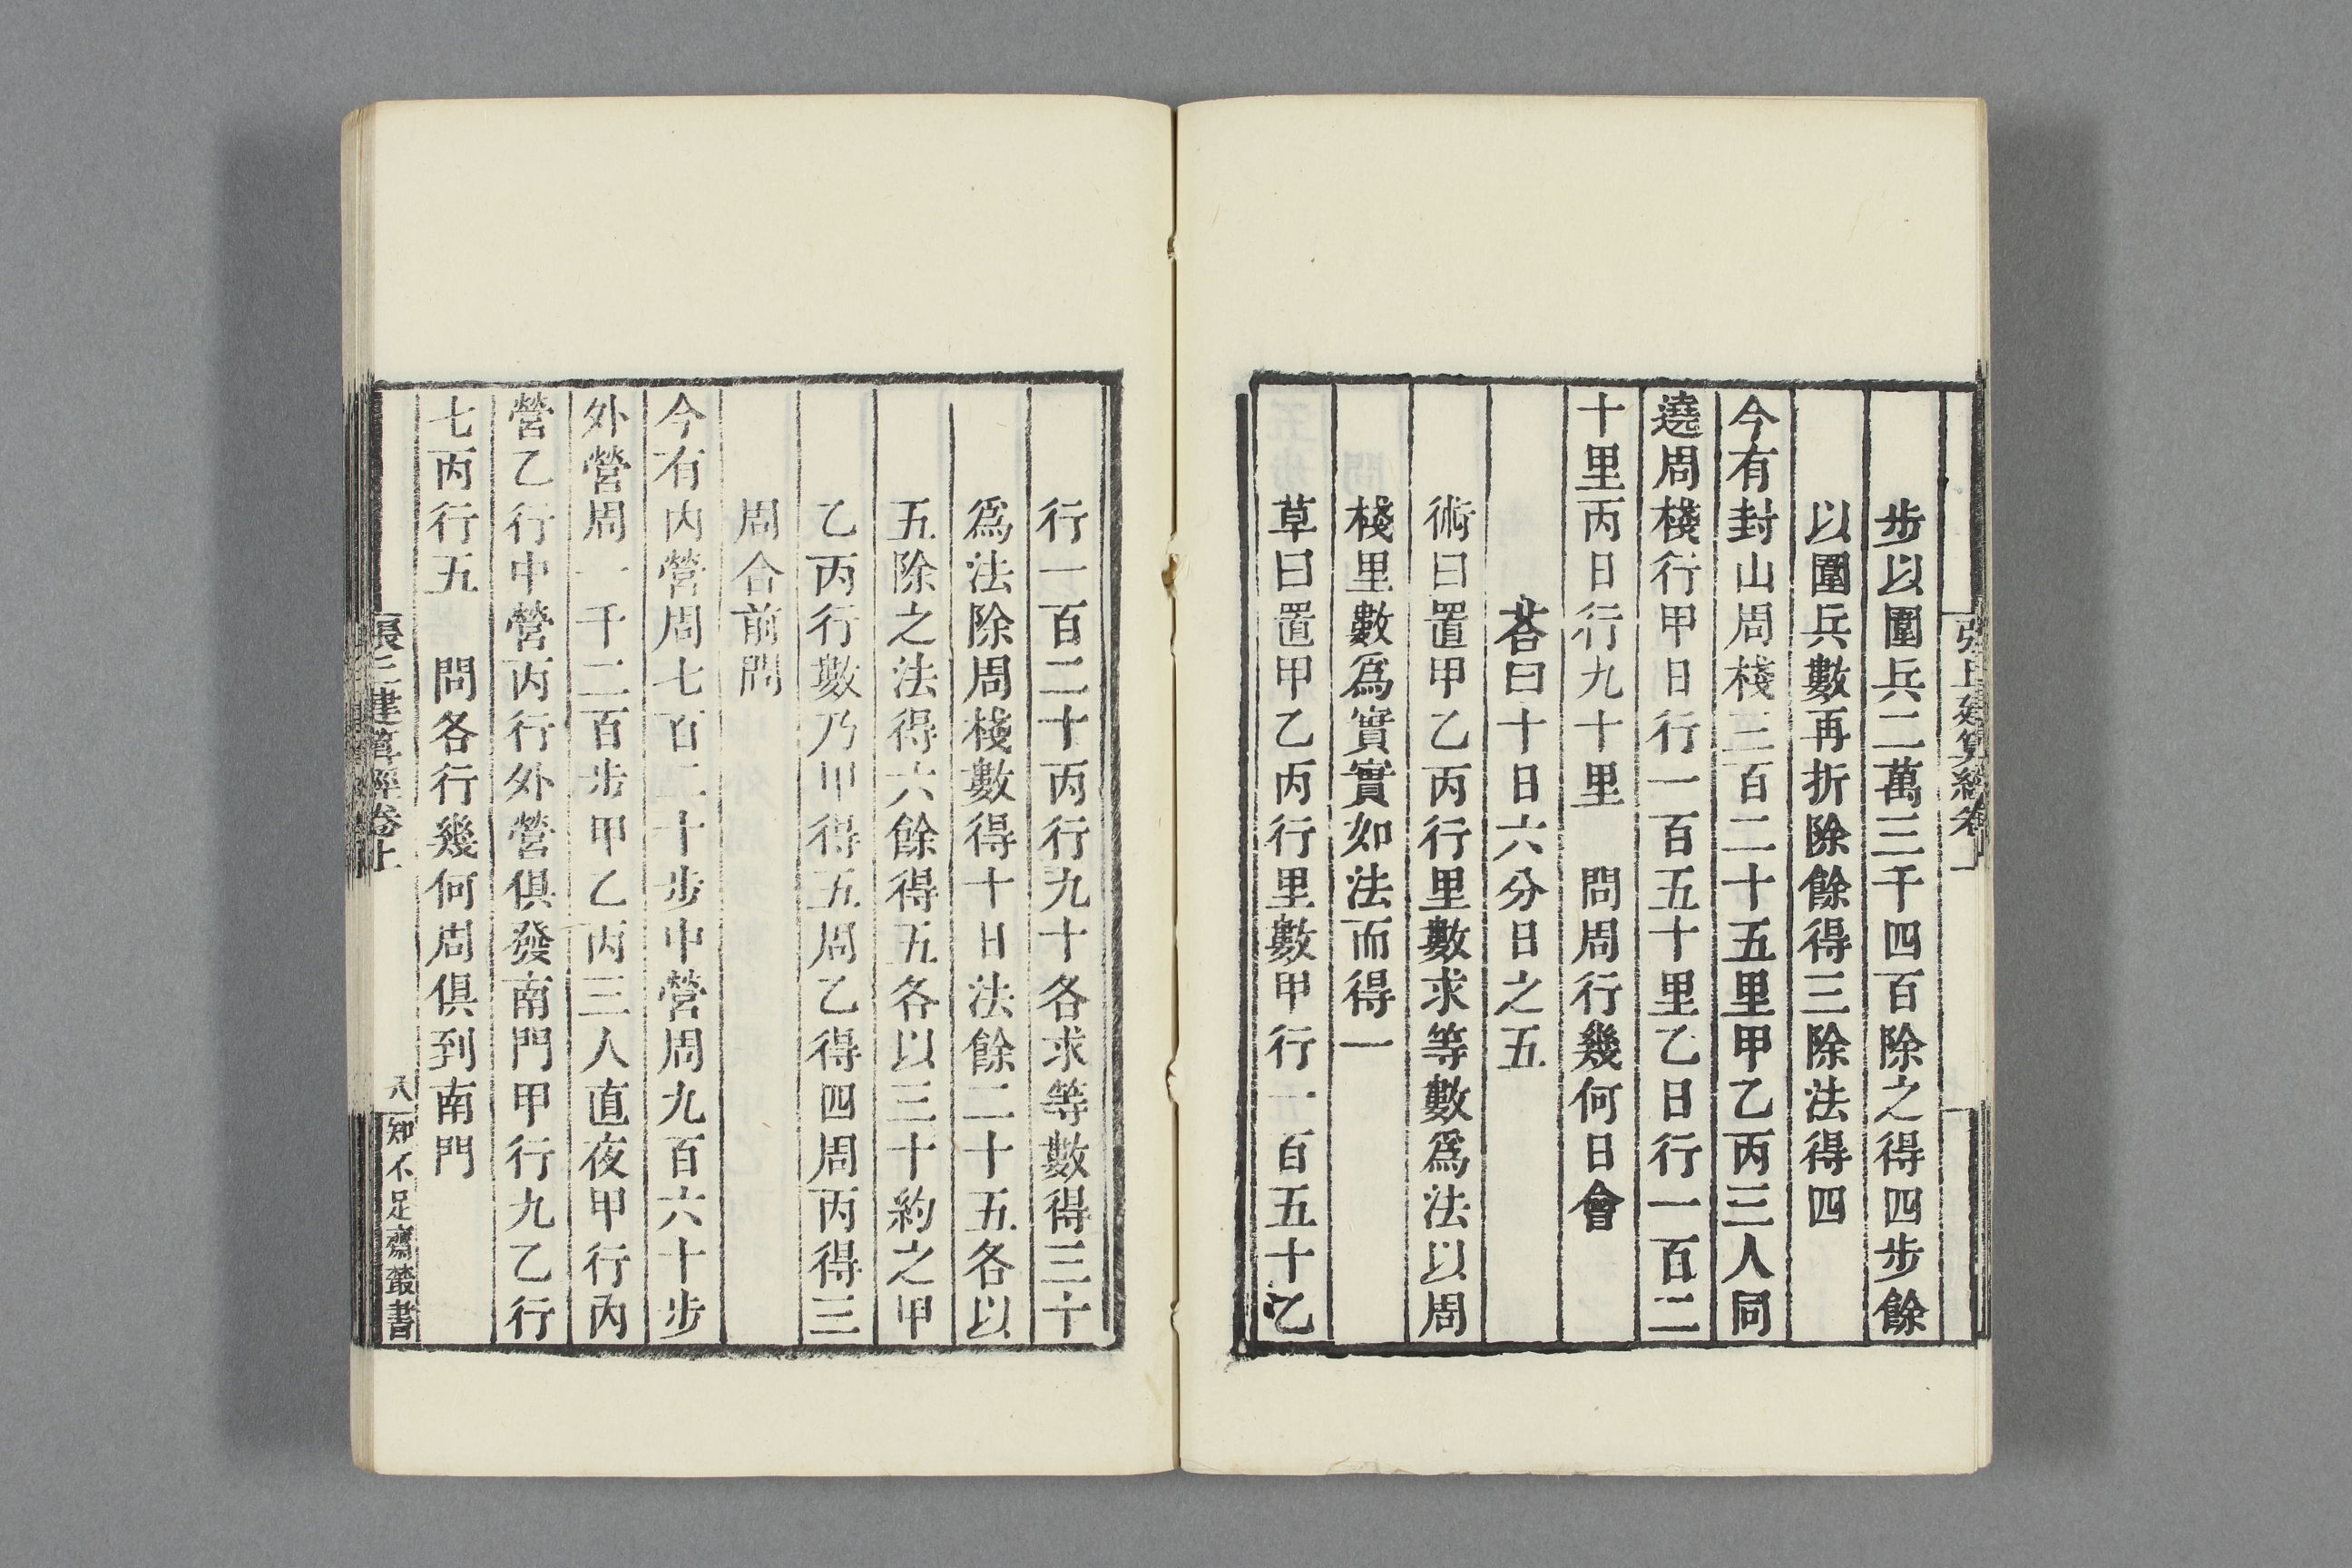 張丘建算經卷上
步以圍兵二萬三千四百除之得四步餘
以圍兵數再折除餘得三除法得四
今有封山周棧三百二十五里甲乙丙三人同
遶周棧行甲日行一百五十里乙日行一百二
十里丙日行九十里　問周行幾何日會
荅曰十日六分日之五
術曰置甲乙丙行里數求等數爲法以周
棧里數爲實實如法而得一
草曰置甲乙丙行里數甲行一百五十乙
行一百二十丙行九十各求等數得三十
爲法除周棧數得十日法餘二十五各以
五除之法得六餘得五各以三十約之甲
乙丙行數乃甲得五周乙得四周丙得三
周合前問
今有內營周七百二十步中營周九百六十步
外營周一千二百步甲乙丙三人直夜甲行內
營乙行中營丙行外營俱發南門甲行九乙行
七丙行五　問各行幾何周俱到南門
張丘建算經卷上
八
知不足齋叢書